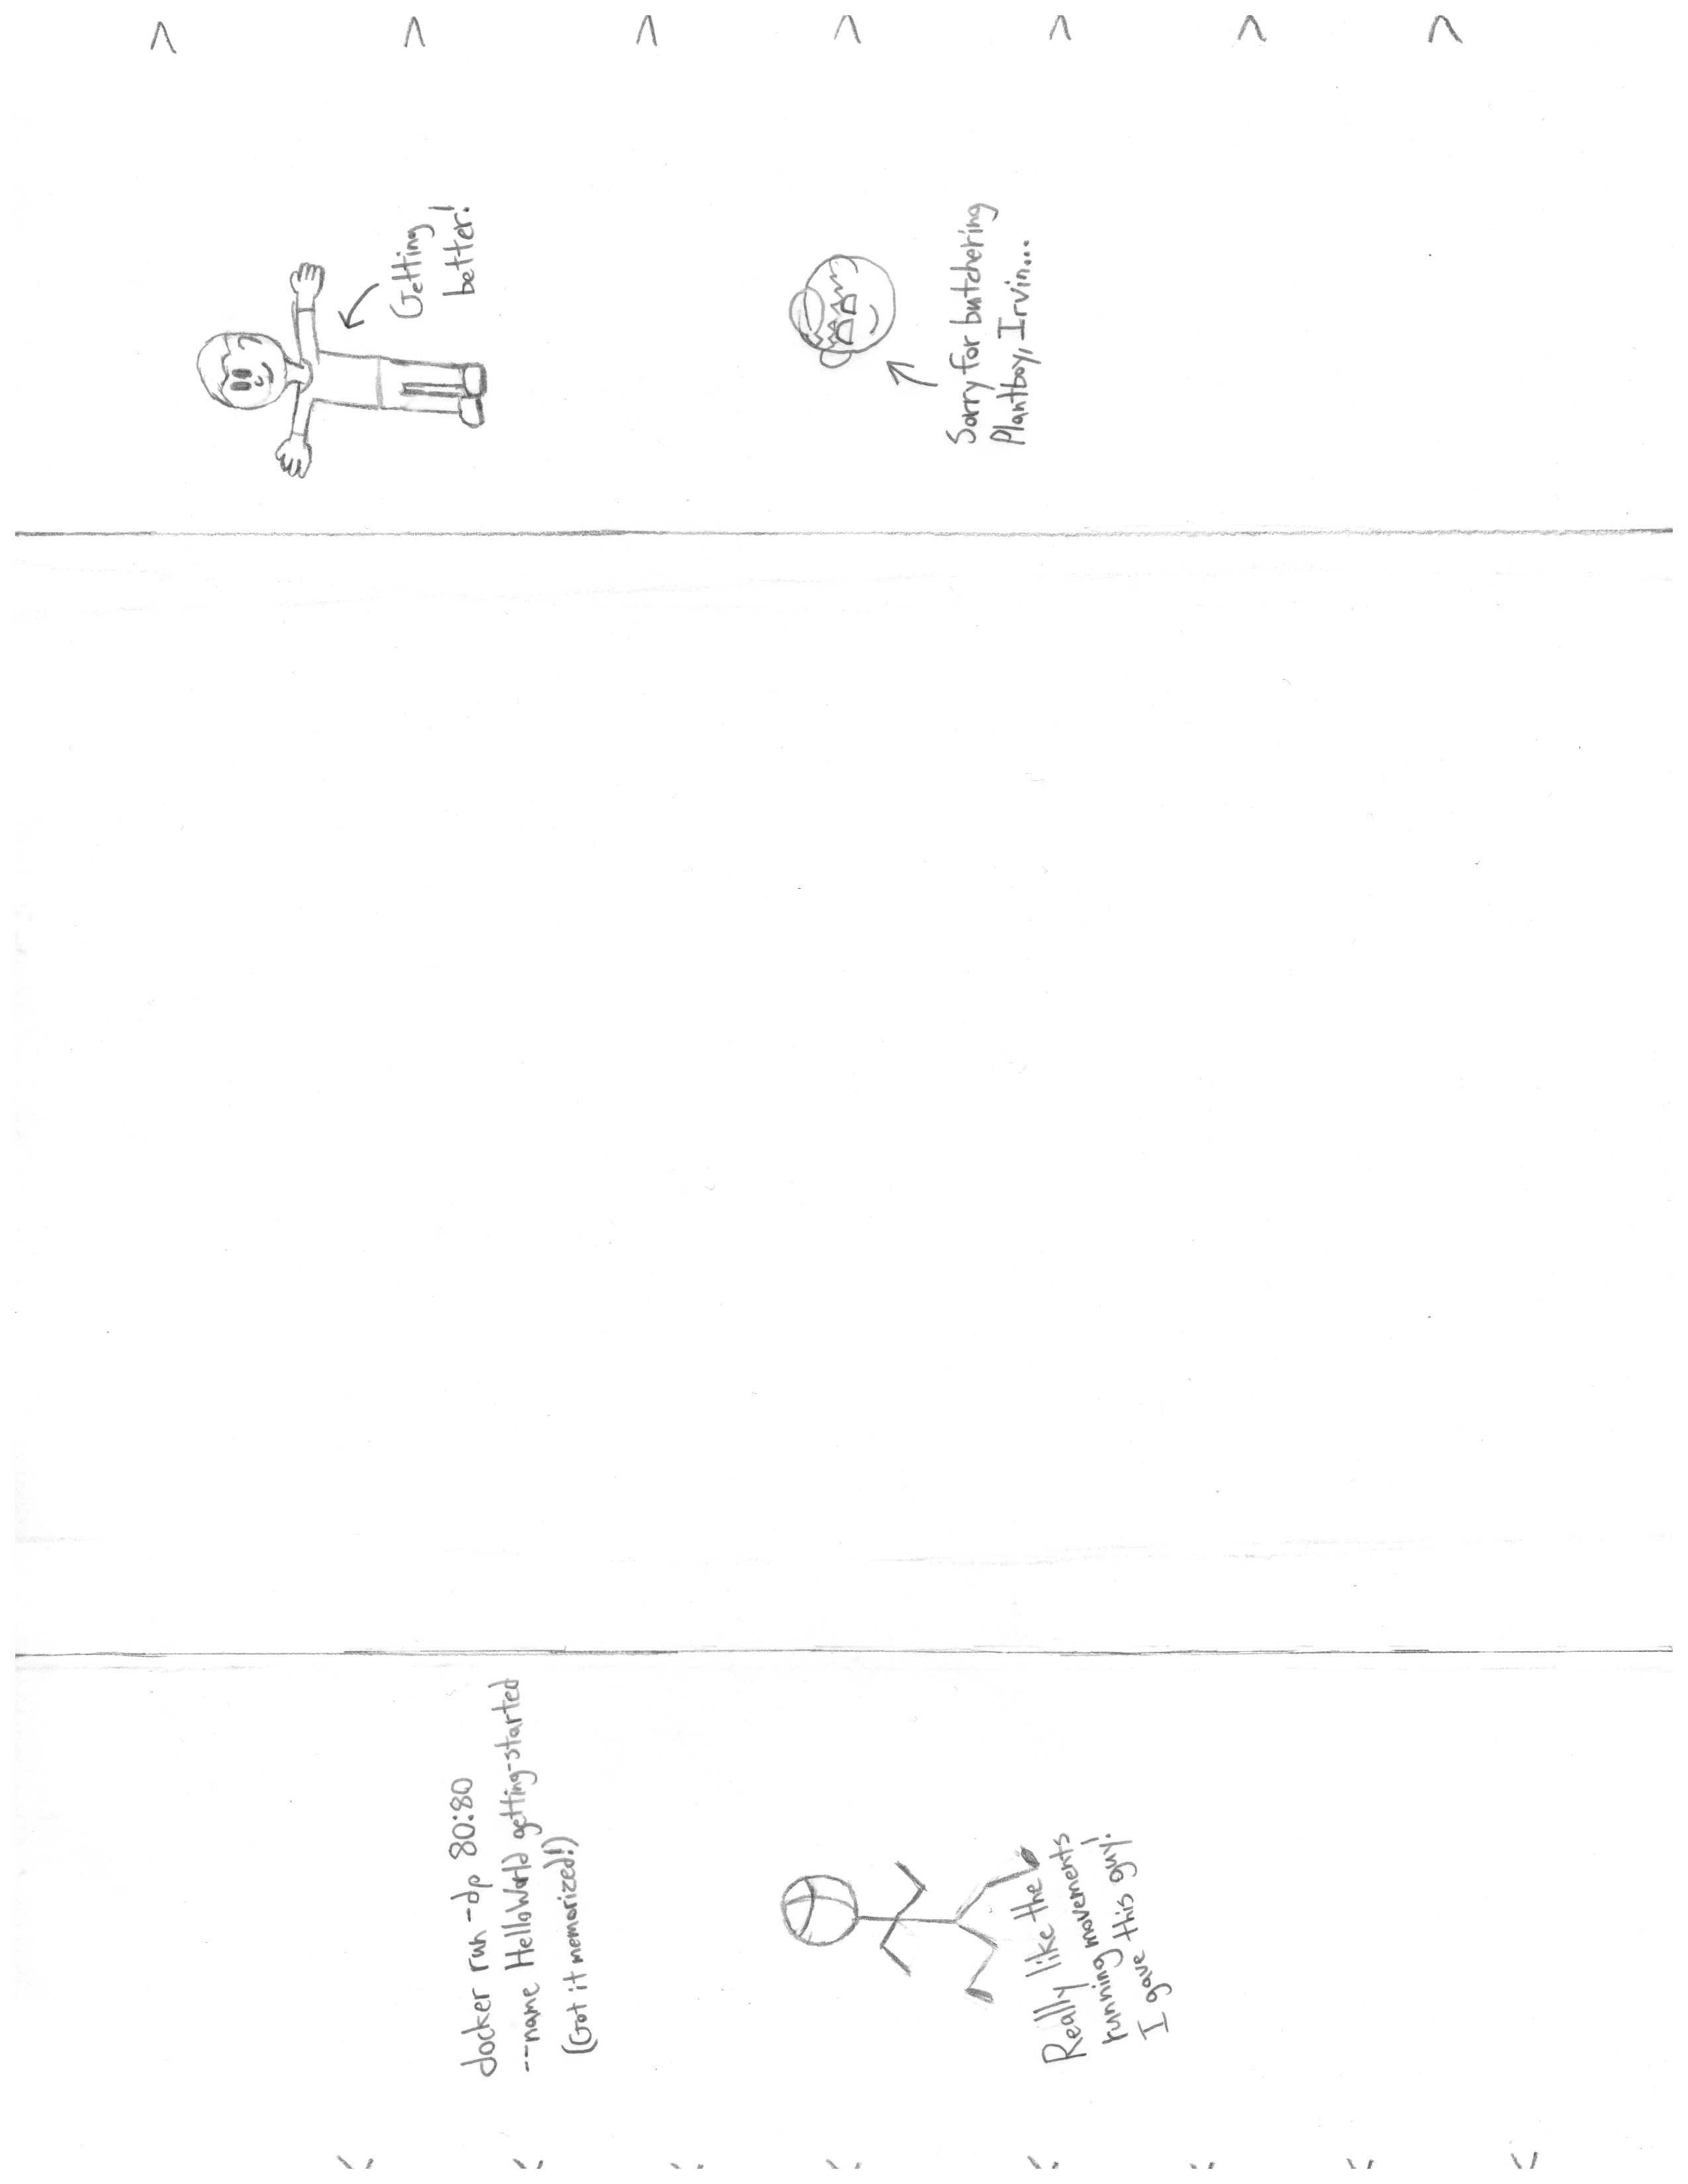 docker run -dp 80:80
--name HelloWorld getting-started
(Got it memorized!)
Really like the
running movements
I gave this guy!
Getting
better!
Sorry for butchering
Plantboy, Irvin...